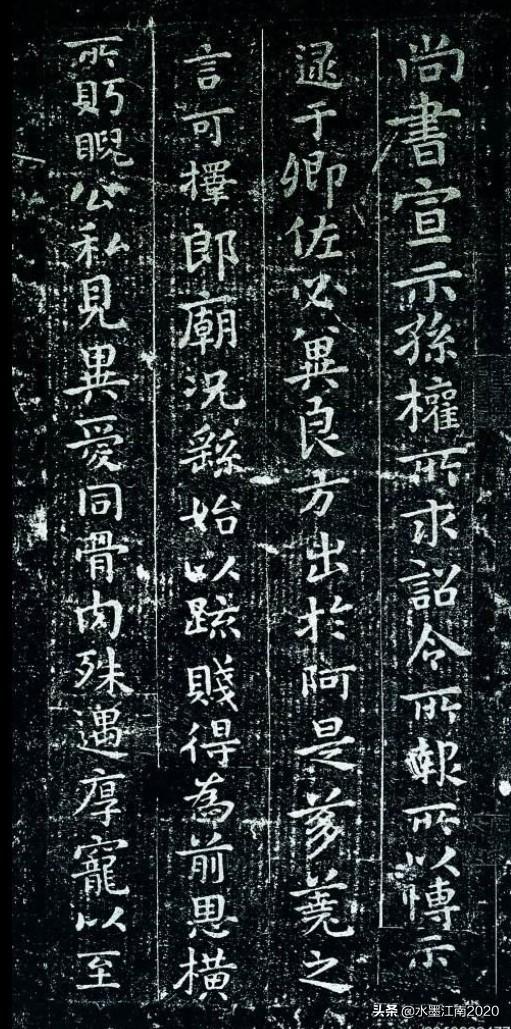 尚書宣示孫權所求詔令所報所以博示
逮于卿佐必冀良方出於阿是芻蕘之
言可擇郎廟況繇始以疏賤得為前恩橫
所眄睨公私見異愛同骨肉殊遇厚寵以至
头条 @水墨江南2020